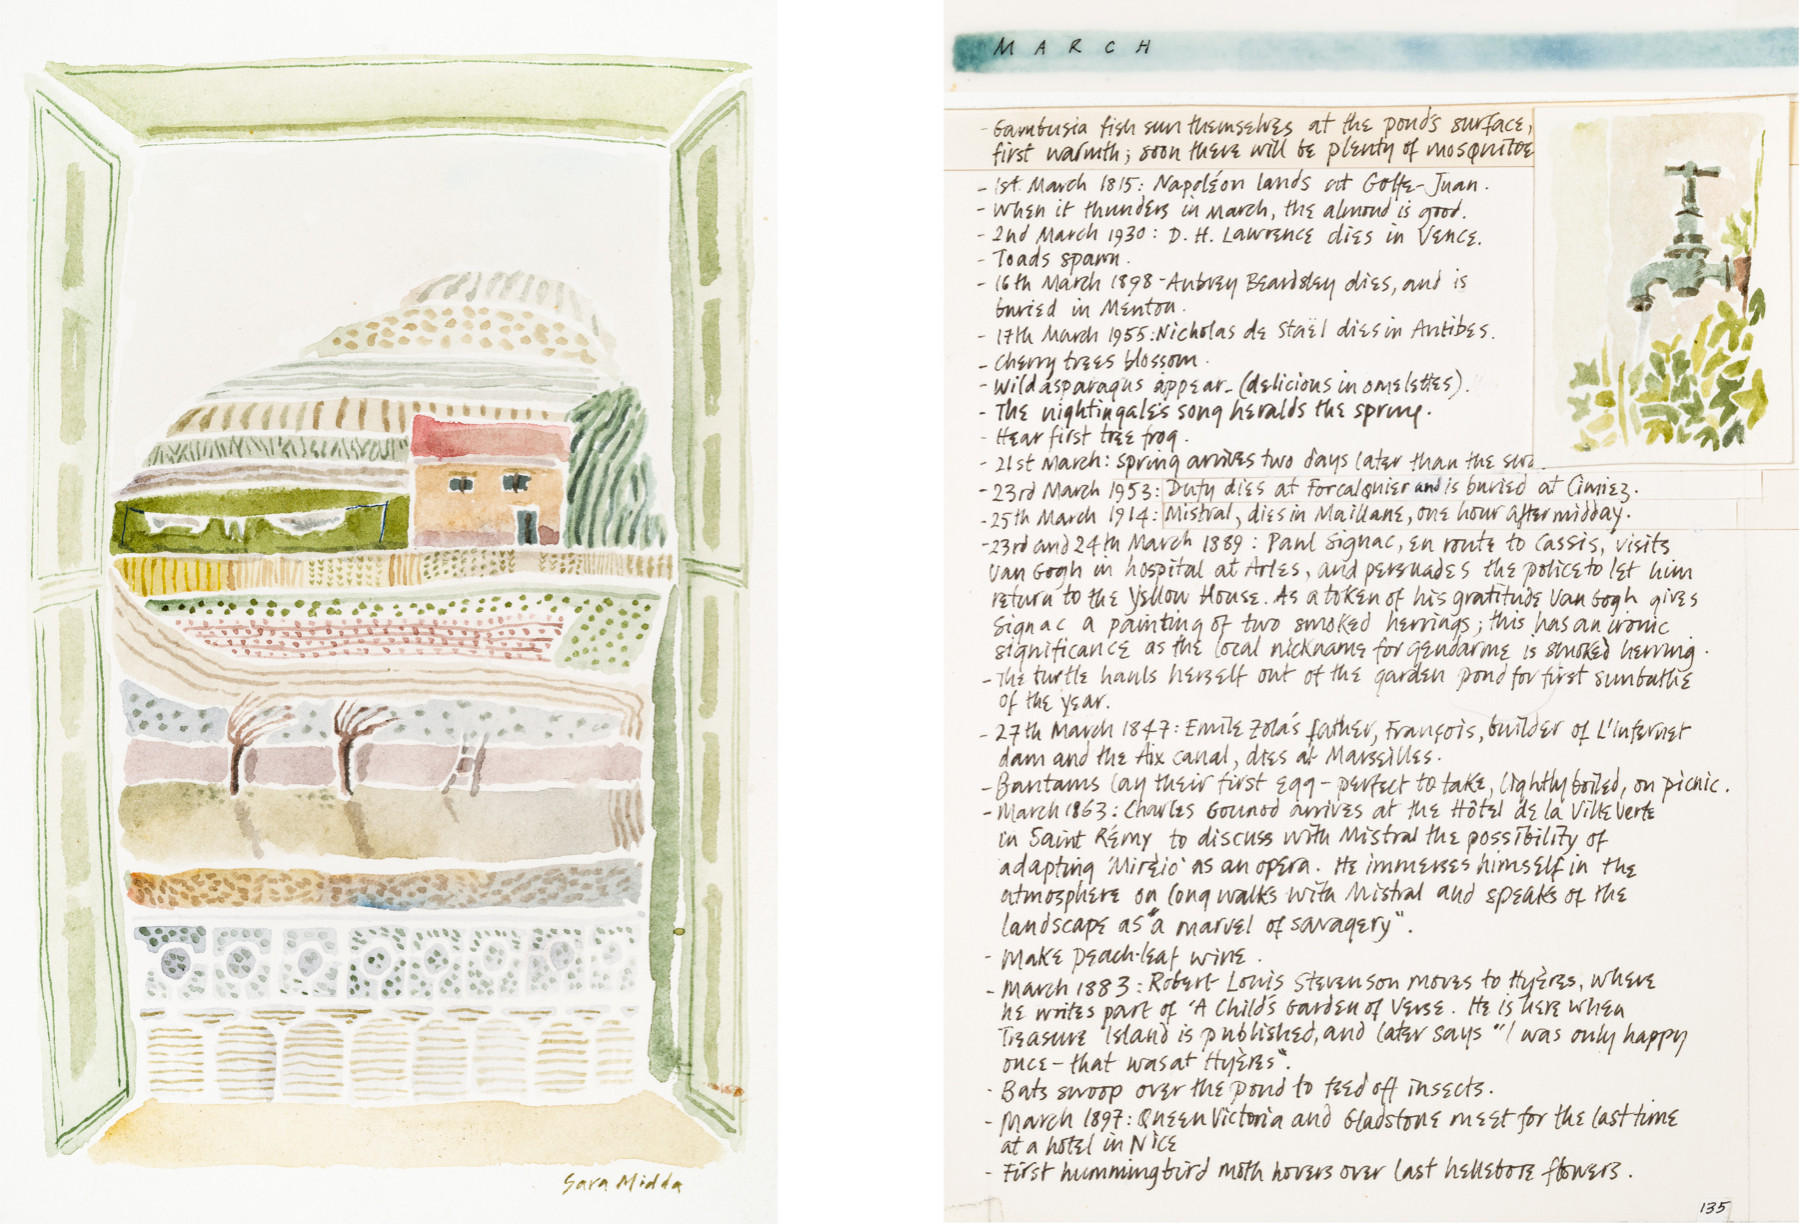 Sara Midda
MARCH
- Gambusia fish sun themselves at the pond's surface,
first warmth; soon there will be plenty of mosquitoe
- 1st March 1815: Napoléon lands at Golfe-Juan.
- When it thunders in March, the almond is good.
- 2nd March 1930: D. H. Lawrence dies in Vence.
- Toads spawn.
- 16th March 1898 - Aubrey Beardsley dies, and is
buried in Menton.
- 17th March 1955: Nicholas de Staël dies in Antibes.
- Cherry trees blossom.
- Wild asparagus appear - (delicious in omelettes).
- The nightingale's song heralds the spring.
- Hear first tree frog.
- 21st March: Spring arrives two days later than the
- 23rd March 1953: Dufy dies at Forcalquier and is buried at Cimiez.
- 25th March 1914: Mistral, dies in Maillane, one hour after midday.
- 23rd and 24th March 1889: Paul Signac, en route to Cassis, visits
Van Gogh in hospital at Arles, and persuades the police to let him
return to the Yellow House. As a token of his gratitude Van Gogh gives
Signac a painting of two smoked herrings; this has an ironic
significance as the local nickname for gendarme is smoked herring.
- The turtle hauls herself out of the garden pond for first sunbathe
of the year.
- 27th March 1847: Emile Zola's father, François, builder of L'Infernet
dam and the Aix canal, dies at Marseilles.
- Bantams lay their first egg - perfect to take, lightly boiled, on picnic.
- March 1863: Charles Gounod arrives at the Hôtel de la Ville Verte
in Saint Rémy to discuss with Mistral the possibility of
adapting 'Mirèio' as an opera. He immerses himself in the
atmosphere on long walks with Mistral and speaks of the
landscape as "a marvel of savagery".
- Make peach-leaf wine.
- March 1883: Robert Louis Stevenson moves to Hyères, where
he writes part of 'A Child's Garden of Verse. He is here when
Treasure Island is published, and later says "I was only happy
once - that was at Hyères".
- Bats swoop over the pond to feed off insects.
- March 1897: Queen Victoria and Gladstone meet for the last time
at a hotel in Nice
- First hummingbird moth hovers over last hellebore flowers.
135